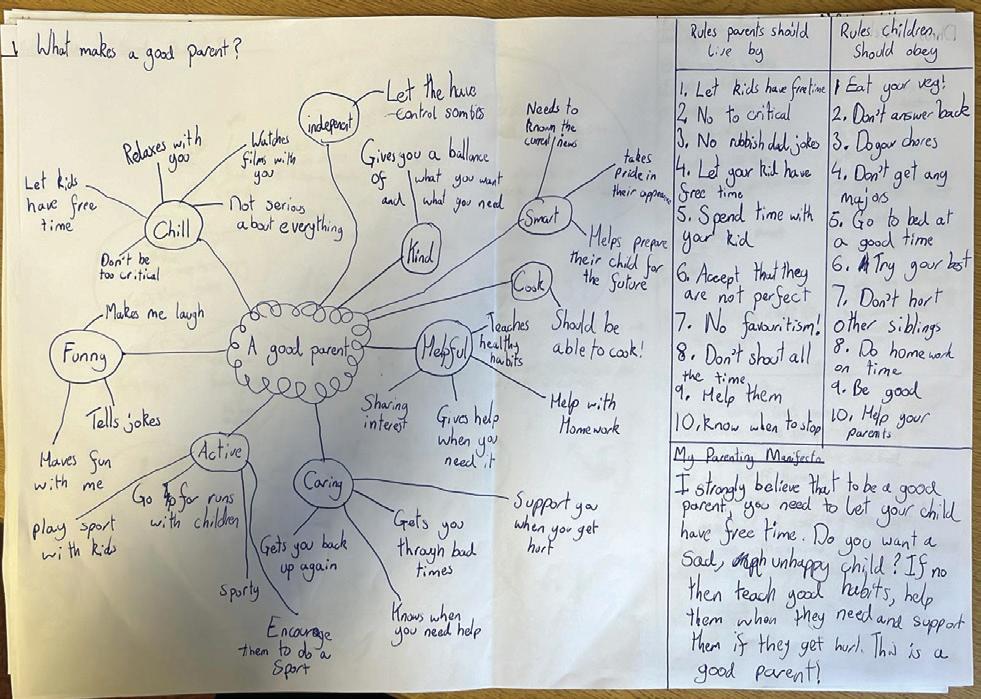 What makes a good parent?
independent
Let the have
control somties
Relaxes with
you
Watches
films with
you
Let kids
have free
time
Not serious
about everything
Chill
Don't be
too critical
Gives you a ballance
of what you want
and what you need
Kind
Needs to
known the
current news
takes
pride in
their appearance
Smart
Helps prepare
their child for
the future
Cook
Should be
able to cook!
Makes me laugh
Funny
Tells jokes
Haves fun
with me
A good parent
Helpful
Teaches
healthy
habits
Sharing
interest
Gives help
when you
need it
Help with
Homework
Active
play sport
with kids
Go for runs
with children
Sporty
Encourage
them to do a
Sport
Caring
Gets you back
up again
Gets you
through bad
times
Support you
when you get
hurt
Knows when
you need help
Rules parents should
live by
1. Let kids have freetime
2. No to critical
3. No rubbish dad jokes
4. Let your kid have
free time
5. Spend time with
your kid
6. Accept that they
are not perfect
7. No favouritism!
8. Don't shout all
the time
9. Help them
10. Know when to stop
Rules children
should obey
1 Eat your veg!
2. Don't answer back
3. Do your chores
4. Don't get any
majors
5. Go to bed at
a good time
6. Try your best
7. Don't hort
other siblings
8. Do homework
on time
9. Be good
10. Help your
parents
My Parenting Manifesto
I strongly believe that to be a good
parent, you need to let your child
have free time. Do you want a
sad, unhappy child? If no
then teach good habits, help
them when they need and support
them if they get hurt. This is a
good parent!